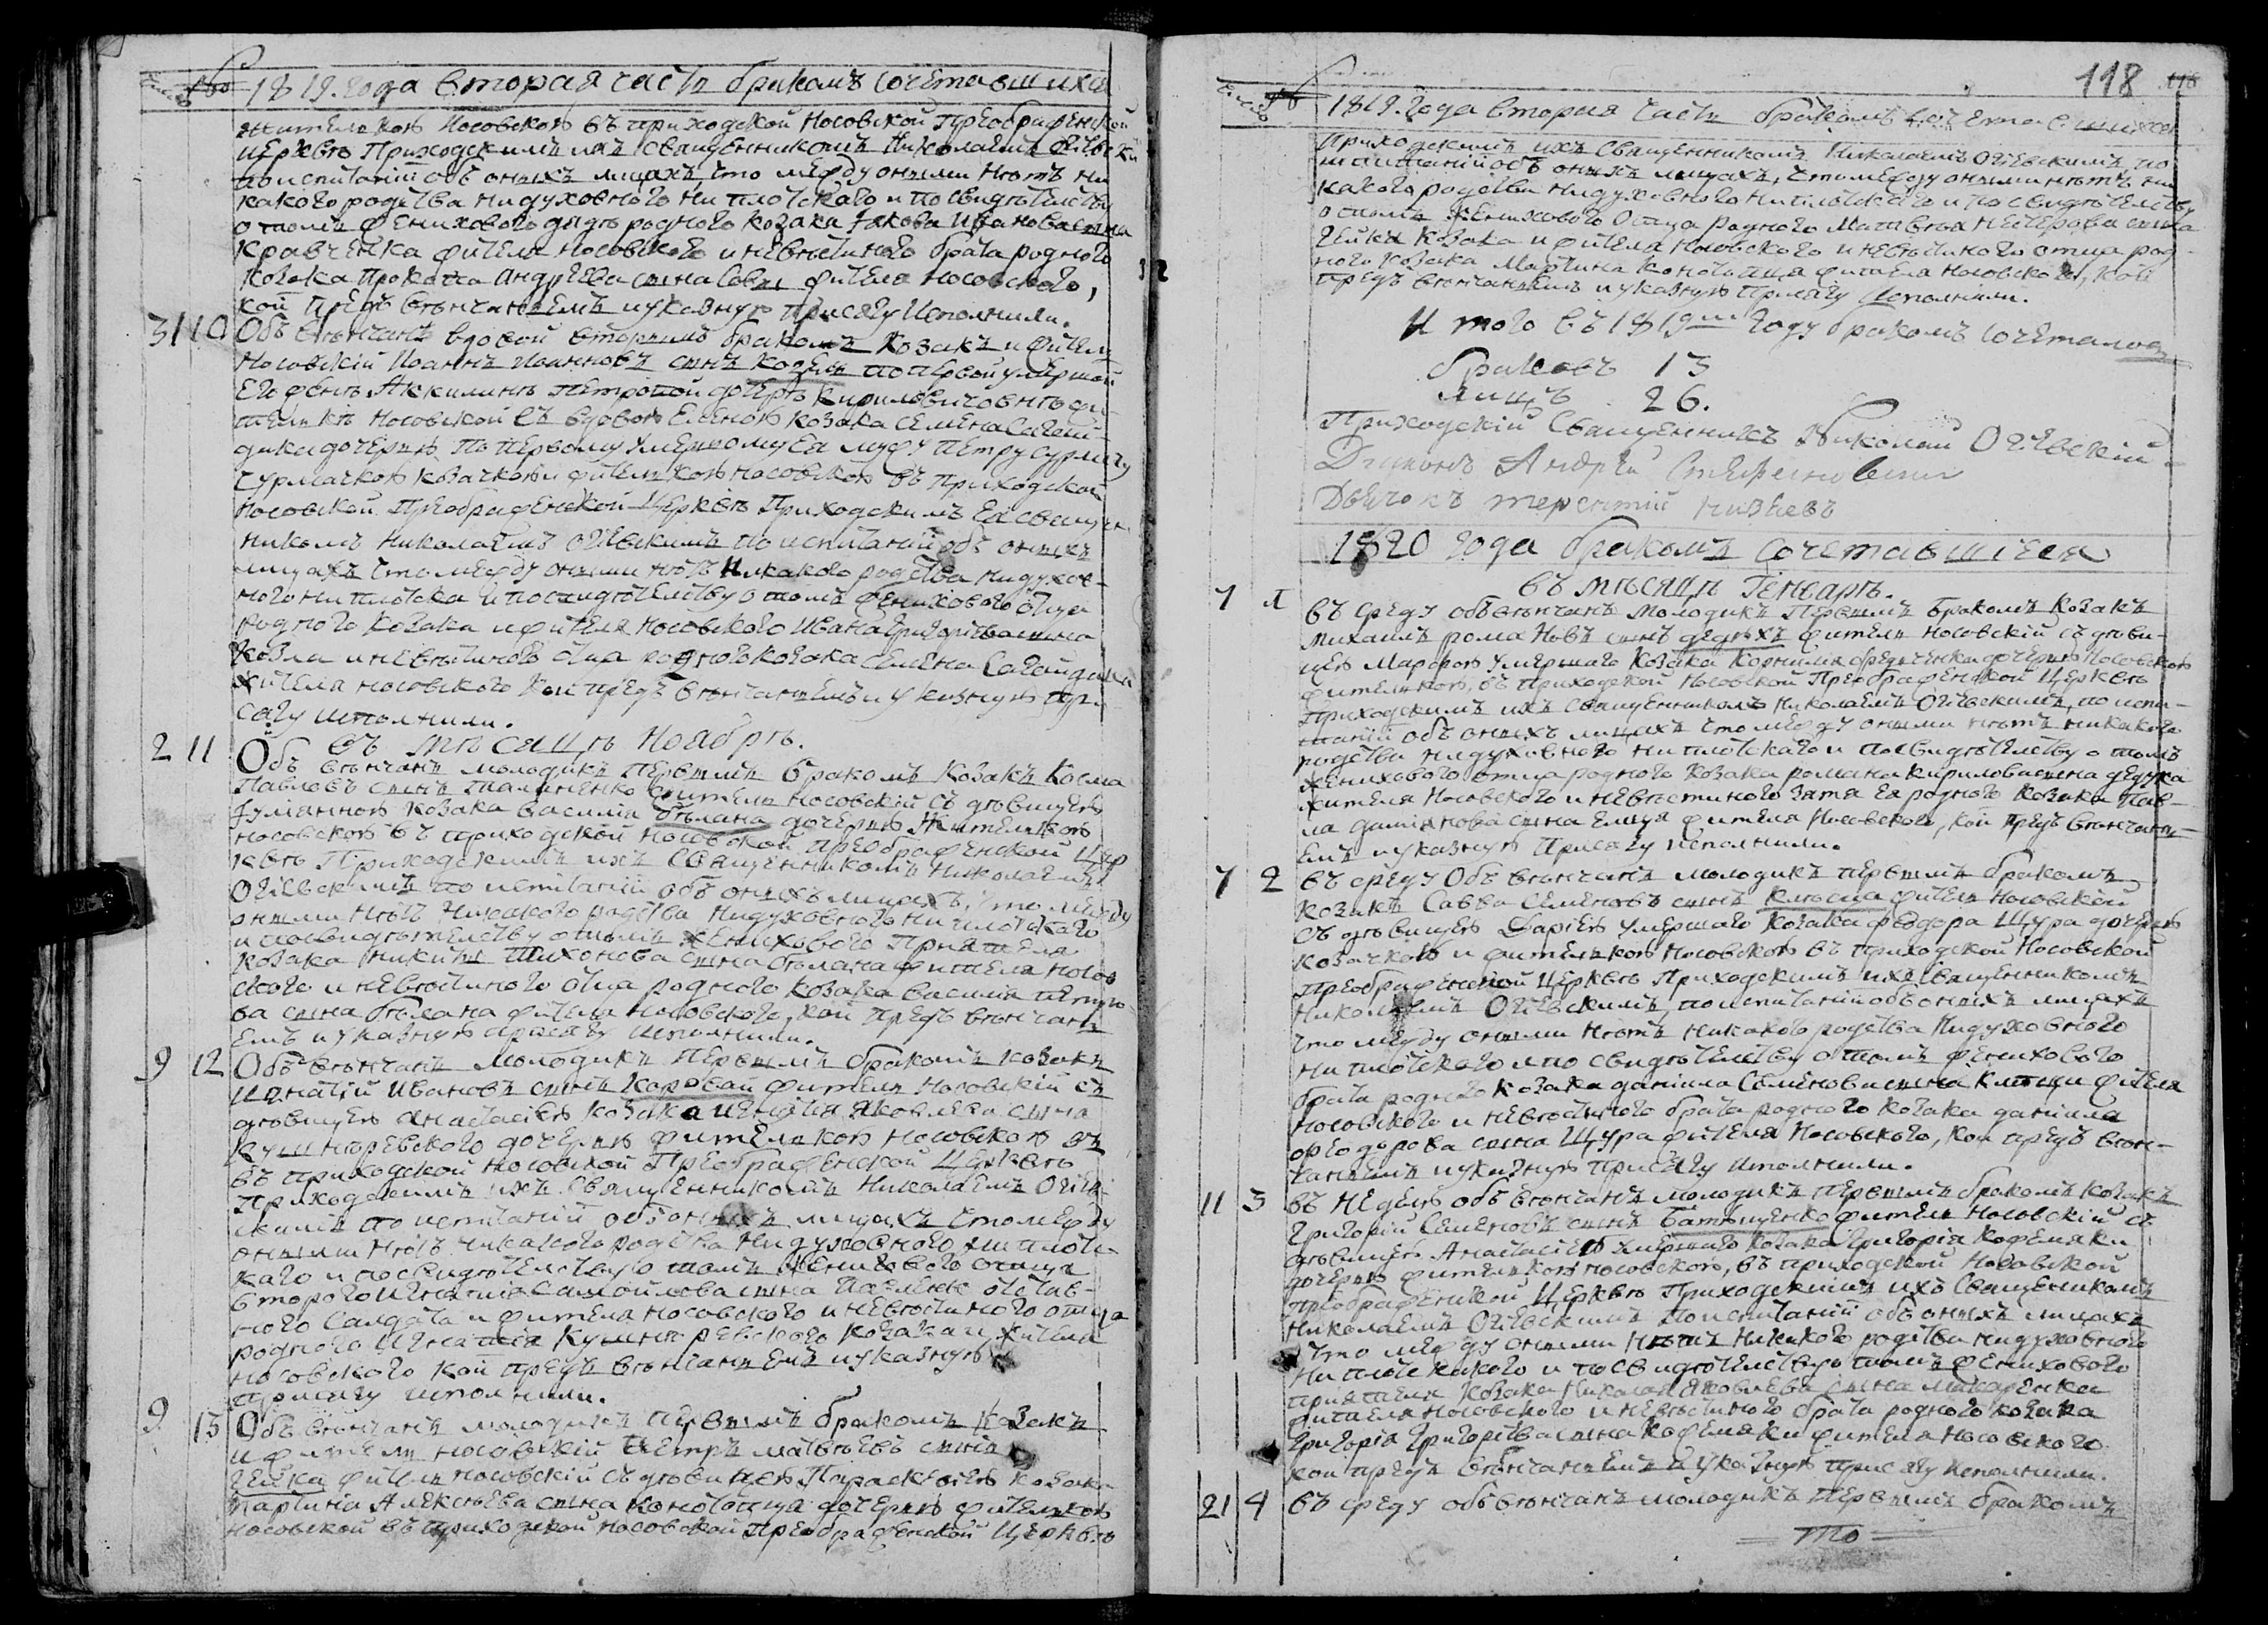 1819. года вторая часть бракомъ сочетавшихся
жителкою Носовскою въ приходской Носовской Преображенской
церквѣ Приходскимъ ихъ священникомъ Николаемъ Огіевски
по испитаніи объ онихъ лицахъ, что между оними нѣтъ ни
какого родства ни духовного ни плотскаго и по свидѣтелству
о томъ женихового дядѣ родного козака Іакова Иванова сина
Кравченка жителя Носовского и невѣстиного брата родного
козака Прокопа Андреева сина Савы жителя Носовского,
кои предъ вѣнчаніемъ и указную присягу исполнили.
31 10 Объвѣнчанъ вдовой вторимъ бракомъ козакъ и житель
Носовскій Иоаннъ Иванновъ синъ Козелъ по первой умершой
его женѣ Аккилинѣ Петровой дочерѣ Кириловичовнѣ жи-
телкѣ Носовской съ вдовою Еленою козака Семена Сагай-
дака дочерью по первому умершому Ея мужу Петру Сурмачу
Сурмачкою козачкою и жителкою Носовскою въ Приходской
Носовской Преображенской Церквѣ Приходскимъ Ея священ
никомъ Николаемъ Огіевскимъ по испитаніи объ онихъ
лицахъ что между оними нѣтъ никакого родства ни духов-
ного ни плотска и по свидѣтелству о томъ жениховогo отца
родного козака и жителя Носовского Ивана Григоріева сина
Козла и невѣстиного отца родного козака Семена Сагайдака
жителя Носовского кои предъ вѣнчаніемъ и указную при
сягу исполнили.
въ мѣсяцѣ Ноябрѣ.
2 11 Объ вѣнчанъ молодикъ первимъ бракомъ козакъ Косма
Павловъ синъ житель Носовскій съ дѣвицею
Іуліанною козака Василія Бѣлана дочерью жителкою
Носовскою въ приходской Носовской Преображенской Цер
квѣ Приходскимъ ихъ Священникомъ Николаемъ
Огіевскимъ по испитаніи объ онихъ лицахъ, что между
оними нѣтъ никакого родства ни духовного ни плотскаго
и по свидѣтелству о томъ жениховогo Пріятеля
козака Никити Тихонова сина Бѣлана жителя Носов
ского и невѣстиного отца родного козака Василія Петро
ва сина Бѣлана жителя Носовского, кои предъ вѣнчані
емъ и указную присягу исполнили.
9 12 Объвѣнчанъ молодикъ первимъ бракомъ козакъ
Игнатій Ивановъ синъ Коровай житель Носовскій съ
дѣвицею Анастасіею козака Игнатія Яковлева сина
Кушнѣревского дочерью жителкою Носовскою въ
въ приходской Носовской Преображенской Церквѣ
Приходскимъ ихъ Священникомъ Николаемъ Огіев-
скимъ по испитаніи объ онихъ лицахъ что между
оними нѣтъ никакого родства ни духовного ни плотс-
каго и по свидѣтелству о томъ жениховогo отца
второго Игнатія Самойлова сина Павленк отстав-
ного Салдата и жителя Носовского и невѣстиного отца
родного Игнатія Кушнѣревского козака и жителя
Носовского кои предъ вѣнчаніемъ и указную
присягу исполнили.
9 13 Объвѣнчанъ молодикъ первимъ бракомъ козакъ
и житель Носовскій Петръ Матвѣевъ синъ
Гейка житель Носовскій съ дѣвицею Параскевіею козака
Мартина Алексѣева сина Конотопца дочерью жителкою
Носовской въ приходской Носовской Преображенской Церквѣ
118
1819. года вторая часть бракомъ сочетавшихся
Приходскимъ ихъ Священникомъ Николаемъ Огіевскимъ, по
испитаніи объ онихъ лицахъ, что между оними нѣтъ ни
какого родства ни духовного ни плотскаго и по свидѣтелству
о томъ жениховогo отца родного Матвѣя Нестерова сина
Гейки козака и жителя Носовского и невѣстиного отца род-
ного козака Мартина Конотопца жителя Носовского, кои
предъ вѣнчаніемъ и указную присягу исполнили.
И того въ 1819мъ году бракомъ сочеталось
браковъ 13
лицъ 26.
Приходскій Священникъ Николай Огіевскій
Діаконъ Андрей Стефановскій
Дьячокъ Терентій
1820 года бракомъ сочетавшіеся
въ мѣсяцѣ Генварѣ.
7 1 въ среду объвѣнчанъ молодикъ первимъ бракомъ козакъ
Михаилъ Романовъ синъ Дедухъ житель Носовскій съ дѣви-
цею Марфою умершаго козака Корнилія дочерью Носовскою
жителкою, въ приходской Носовской Преображенской Церквѣ
приходскимъ ихъ священникомъ Николаемъ Огіевскимъ, по испи-
таніи объ онихъ лицахъ что между оними нѣтъ никакого
родства ни духовного ни плотскаго и по свидѣтелству о томъ
жениховогo отца родного козака Романа Кирилова сина Дедука
жителя Носовского и невѣстиного зятя ея родного козака Пав-
ла Даміянова сина Емца жителя Носовского, кои предъ вѣнчані-
емъ и указную присягу исполнили.
7 2 въ среду Объ вѣнчанъ молодикъ первимъ бракомъ
козакъ Савва Семеновъ синъ житель Носовскій
съ дѣвицею Даріею умершаго козака Феодора Щура дочерью
козачкою и жителкою Носовскою въ приходской Носовской
Преображенской Церквѣ Приходскимъ ихъ Священникомъ
Николаемъ Огіевскимъ, по испитаніи объ онихъ лицахъ
что между оними нѣтъ никакого родства ни духовного
ни плотского и по свидѣтелству о томъ жениховогo
брата родного козака Даніила Семенова сина жителя
Носовского и невѣстиного брата родного козака Даніила
Феодорова сина Щура жителя Носовского, кои предъ вѣн-
чаніемъ и указную присягу исполнили.
11 3 въ неделю объвѣнчанъ молодикъ первимъ бракомъ козакъ
Григорій Семеновъ синъ Батѣщенко житель Носовскій съ
дѣвицею Анастасіею умершаго козака Григорія Кожемяки
дочерью жителкою Носовскою, въ приходской Носовской
Преображенской Церквѣ Приходскимъ ихъ Священикомъ
Николаемъ Огіевскимъ по испитаніи объ онихъ лицахъ
что между оними нѣтъ никакого родства ни духовного
ни плотскаго и по свидѣтелству о томъ жениховогo
пріятеля козака Николая Яковлева сина Макаренка
жителя Носовского и невѣстиного брата родного козака
Григорія Григоріева сина Кожемяки жителя Носовского
кои предъ вѣнчаніемъ и указную присягу исполнили.
21 4 въ среду объвѣнчанъ молодикъ первимъ бракомъ